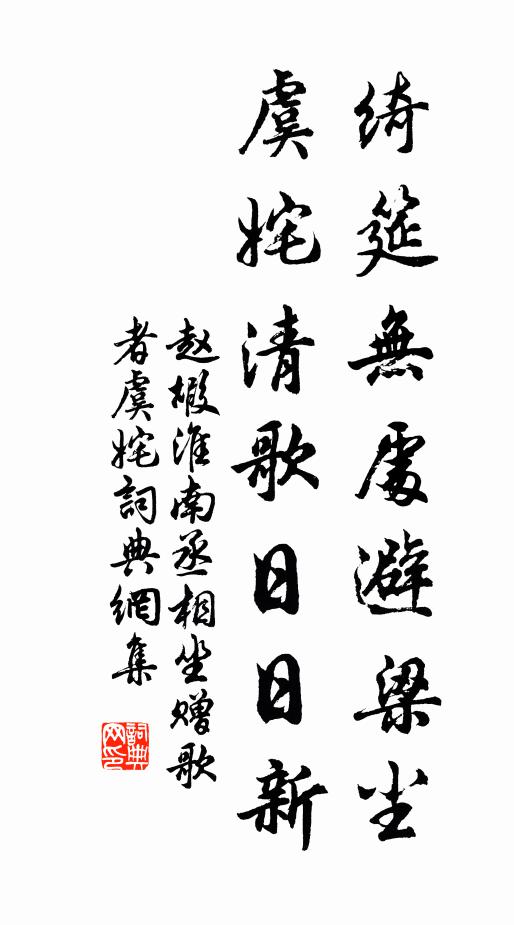 绮筵無處避梁尘
虞姹清歌日日新
赵嘏淮南丞相坐赠歌
者虞姹詞典網集
詞典网印